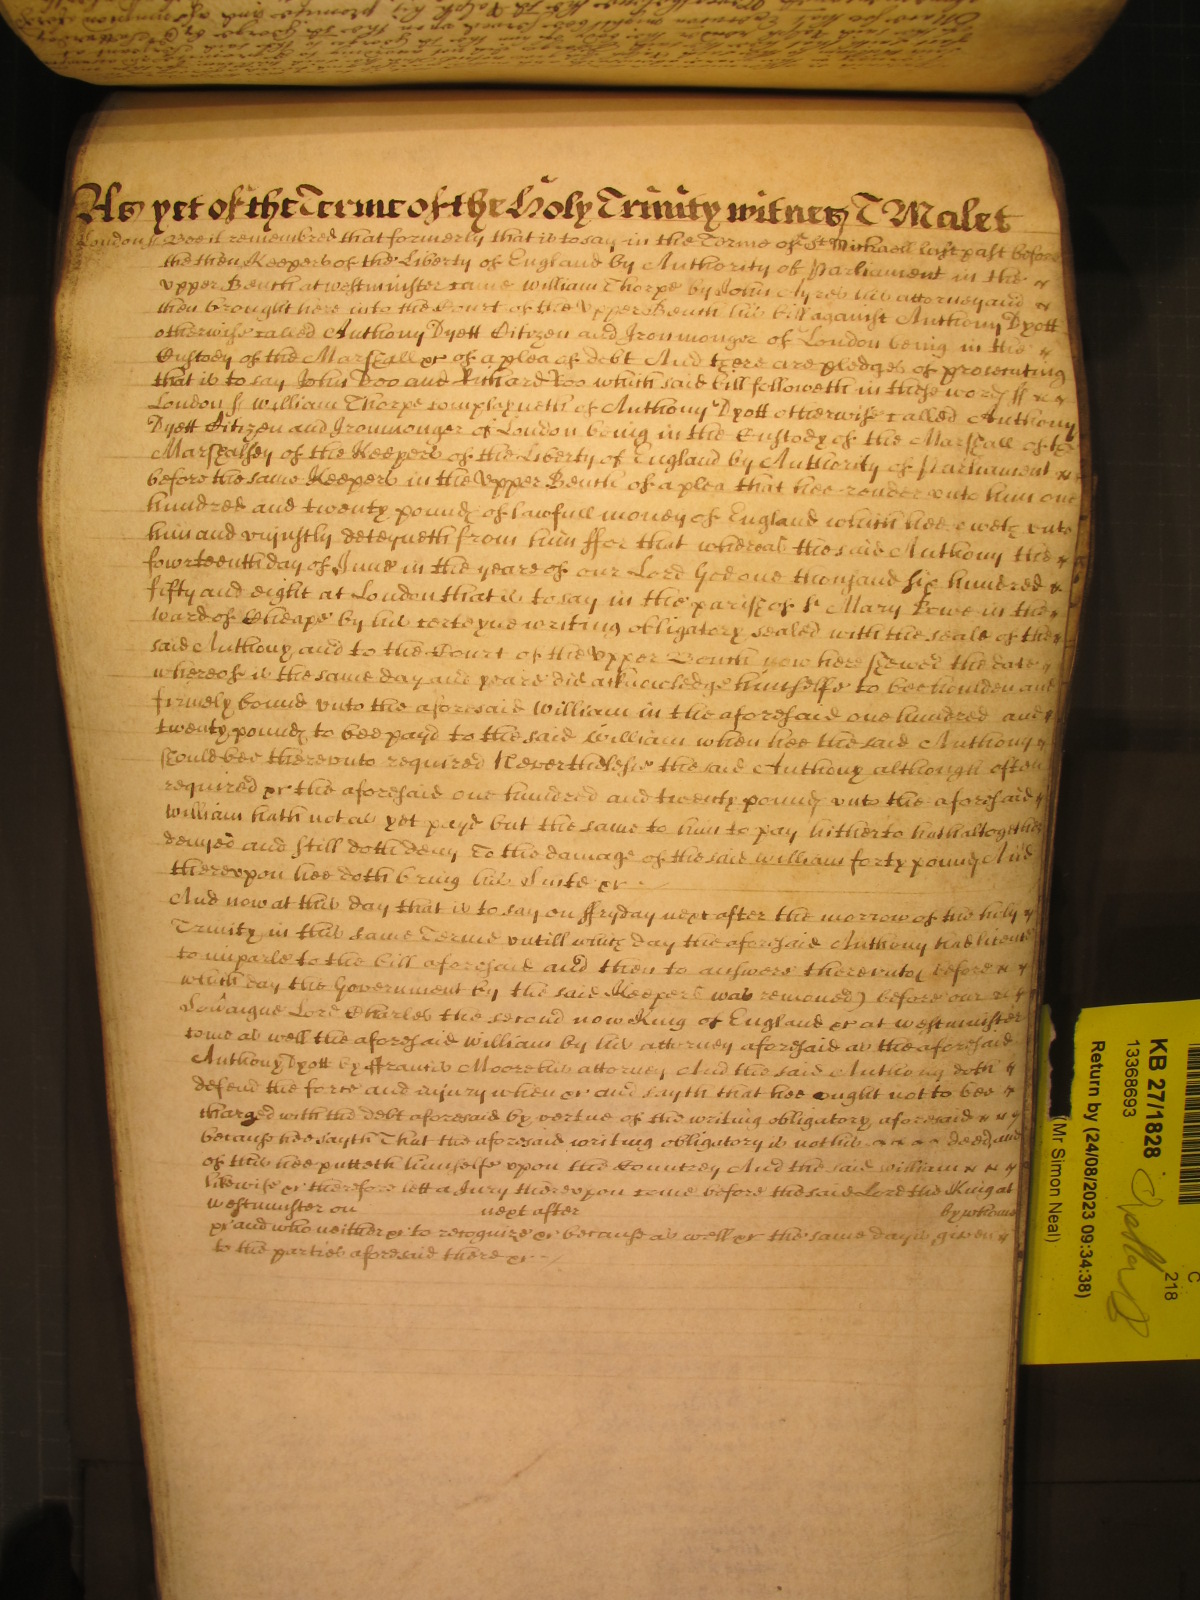 As yet of the Terme of the Holy Trinity witnes T Malet
London ss Bee it remembred that formerly that is to say in the Terme of St Michaell last past before
the then Keepers of the Liberty of England by Authority of Parliament in the
Upper Bench at Westminster came William Thorpe by John Ayres his attorney and
then brought here into the Court of the Upper Bench his bill against Anthony Dyott
otherwise called Anthony Dyett Citizen and Ironmonger of London being in the
Custody of the Marshall &c of a plea of debt And there are pledges of prosecuting
that is to say John Doo and Richard Roo which said bill followeth in these words ss
London ss William Thorpe complayneth of Anthony Dyott otherwise called Anthony
Dyett Citizen and Ironmonger of London being in the Custody of the Marshall of the
Marshalsey of the Keepers of the Liberty of England by Authority of Parliament
before the same Keepers in the Upper Bench of a plea that hee render unto him one
hundred and twenty pounds of lawfull money of England which hee oweth unto
him and unjustly deteyneth from him ffor that whereas the said Anthony the
fowrteenth day of June in the yeare of our Lord God one thousand six hundred
fifty and eight at London that is to say in the parish of St Mary Bowe in the
ward of Cheape by his certeyne writing obligatory sealed with the seale of the
said Anthony and to the Court of the Upper Bench now here shewed the date
whereof is the same day and yeare did acknowledge himselfe to bee houlden and
firmely bound unto the aforesaid William in the aforesaid one hundred and
twenty pounds to bee payd to the said William when hee the said Anthony
should bee thereunto required Neverthelesse the said Anthony although often
required &c the aforesaid one hundred and twenty pounds unto the aforesaid
William hath not as yet payd but the same to him to pay hitherto hath altogether
denyed and still doth deny To the damage of the said William forty pounds And
thereupon hee doth bring his Suite &c
And now at this day that is to say on ffryday next after the morrow of the holy
Trinity in this same Terme untill which day the aforesaid Anthony had licence
to imparle to the bill aforesaid and then to answere thereunto (before
which day the Government by the said Keepers was removed) before our
Soveraigne Lord Charles the second now King of England &c at Westminster
come as well the aforesaid William by his attorney aforesaid as the aforesaid
Anthony Dyott by ffrancis Moore his attorney And the said Anthony doth
defend the force and injury when &c and sayth that hee ought not to bee
charged with the debt aforesaid by vertue of the writing obligatory aforesaid
because hee sayth That the aforesaid writing obligatory is not his deed and
of this hee putteth himselfe upon the Countrey And the said William
likewise &c therefore lett a Jury thereupon come before the said Lord the King at
Westminster on next after by whome
&c and who neither &c to recognize &c because as well &c the same day is given
to the parties aforesaid there &c
KB 27/1828
13368693
Return by (24/08/2023 09:34:38)
(Mr Simon Neal)
C
218